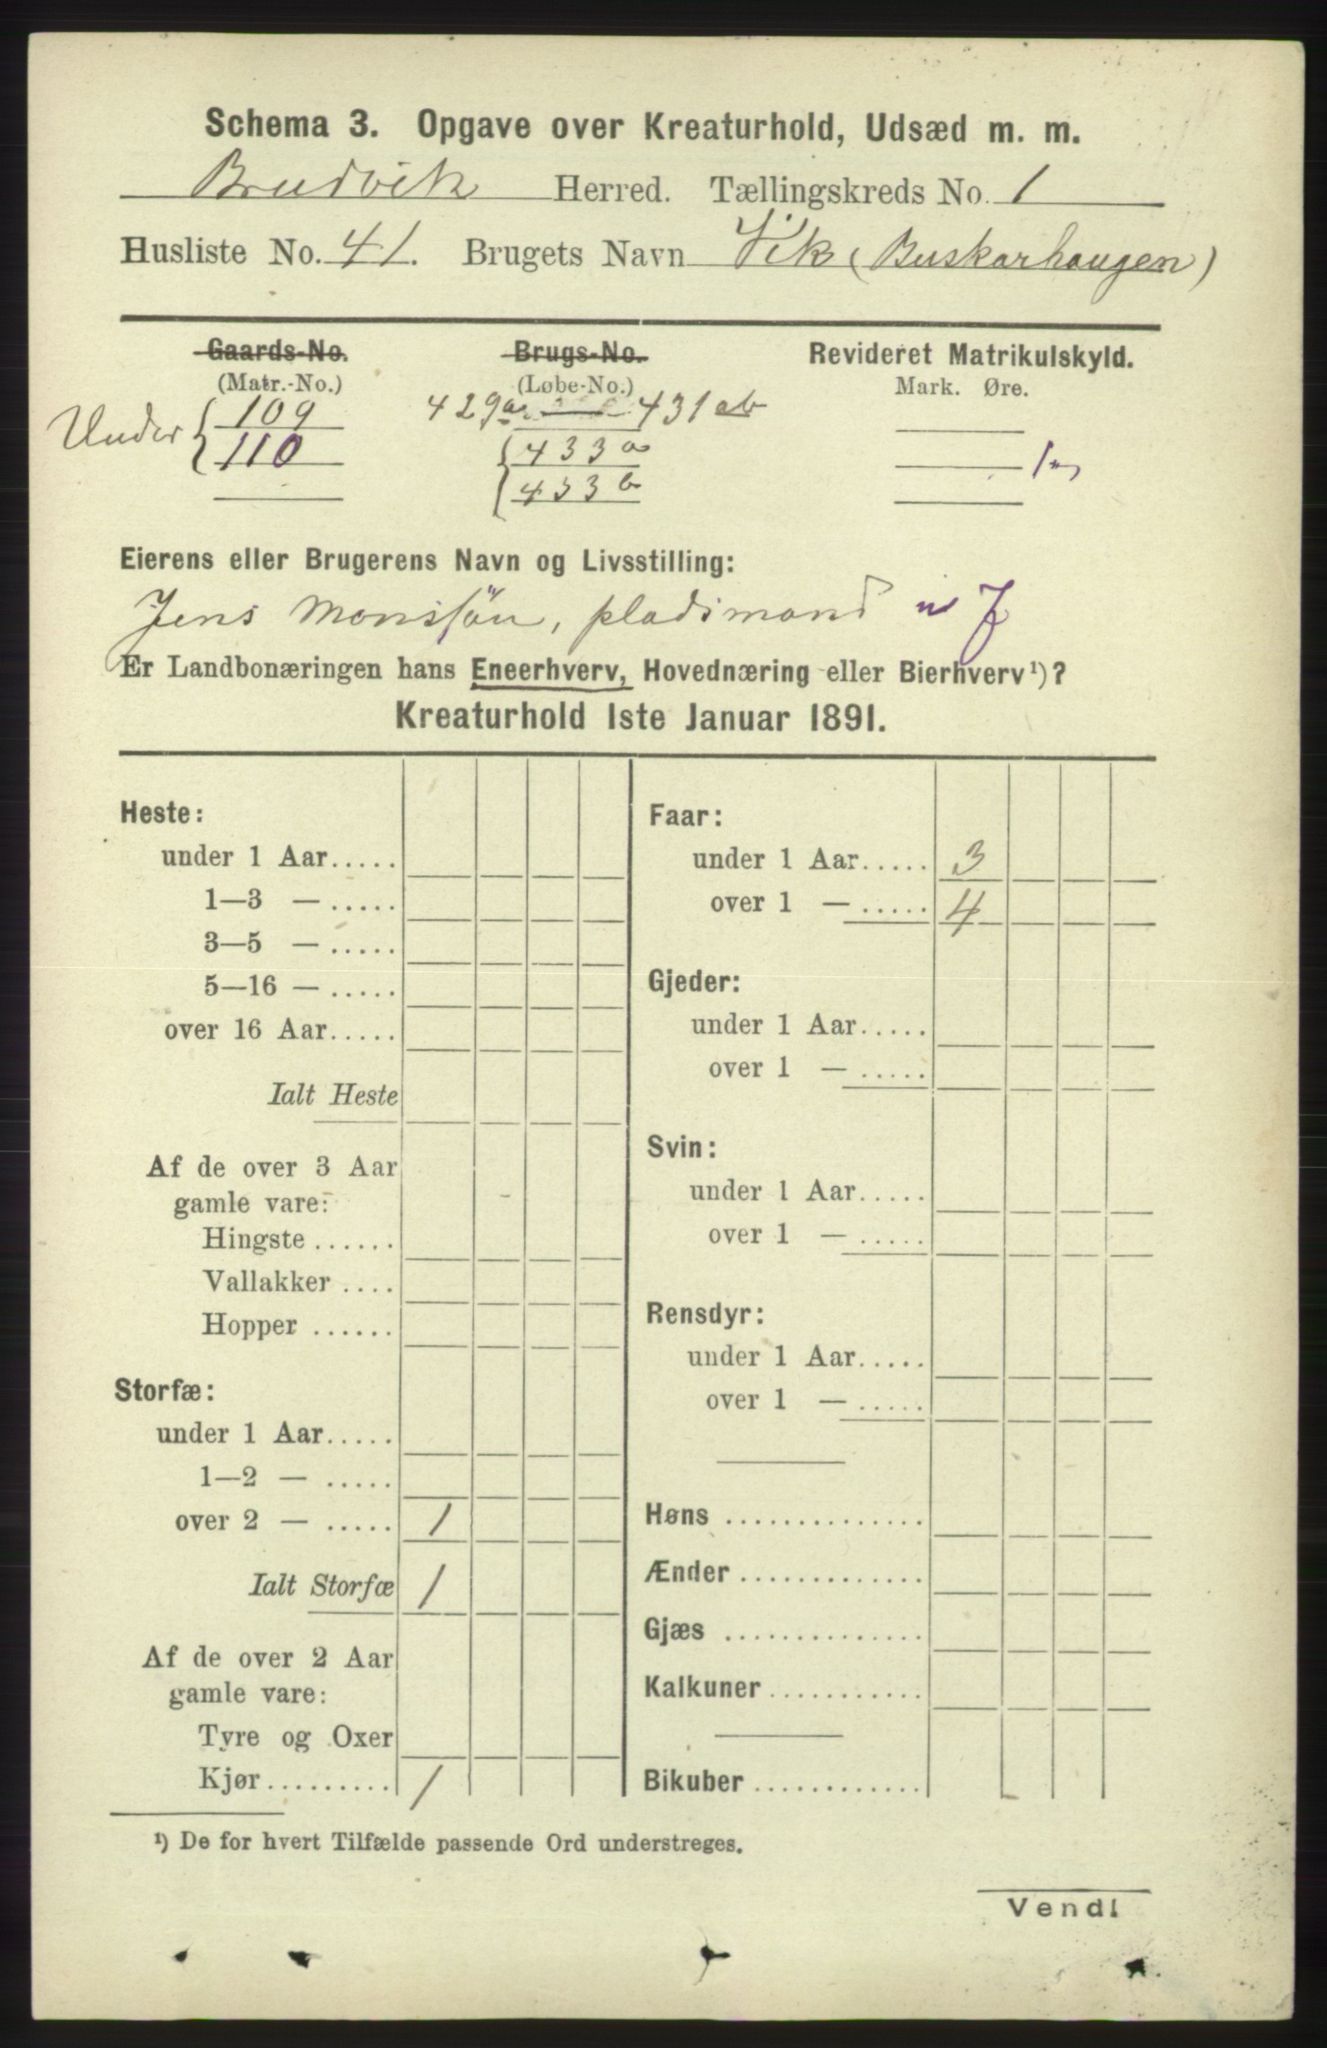 Schema 3. Opgave over Kreaturhold, Udsæd m. m.
Brudvik Herred. Tællingskreds No. 1
Husliste No. 41. Brugets Navn Vik (Buskarhaugen)
Gaards-No. Brugs-No. Revideret Matrikulskyld.
(Matr.-No.) (Løbe-No.) Mark. Øre.
Under { 109 429a 431 ab
110 433 a
433 b
Eierens eller Brugerens Navn og Livsstilling:
Jens Monssön, pladsmand
Er Landbonæringen hans Eneerhverv, Hovednæring eller Bierhverv¹)?
Kreaturhold 1ste Januar 1891.
Heste:
under 1 Aar.....
1—3 — .....
3—5 — .....
5—16 — .....
over 16 Aar.....
Ialt Heste
Af de over 3 Aar
gamle vare:
Hingste ......
Vallakker ....
Hopper ......
Storfæ:
under 1 Aar.....
1—2 — .....
over 2 — ..... 1
Ialt Storfæ 1
Af de over 2 Aar
gamle vare:
Tyre og Oxer
Kjør......... 1
Faar:
under 1 Aar..... 3
over 1 — ..... 4
Gjeder:
under 1 Aar.....
over 1 — .....
Svin:
under 1 Aar.....
over 1 — .....
Rensdyr:
under 1 Aar.....
over 1 — .....
Høns ..............
Ænder .............
Gjæs ..............
Kalkuner...........
Bikuber ............
¹) De for hvert Tilfælde passende Ord understreges.
Vend!